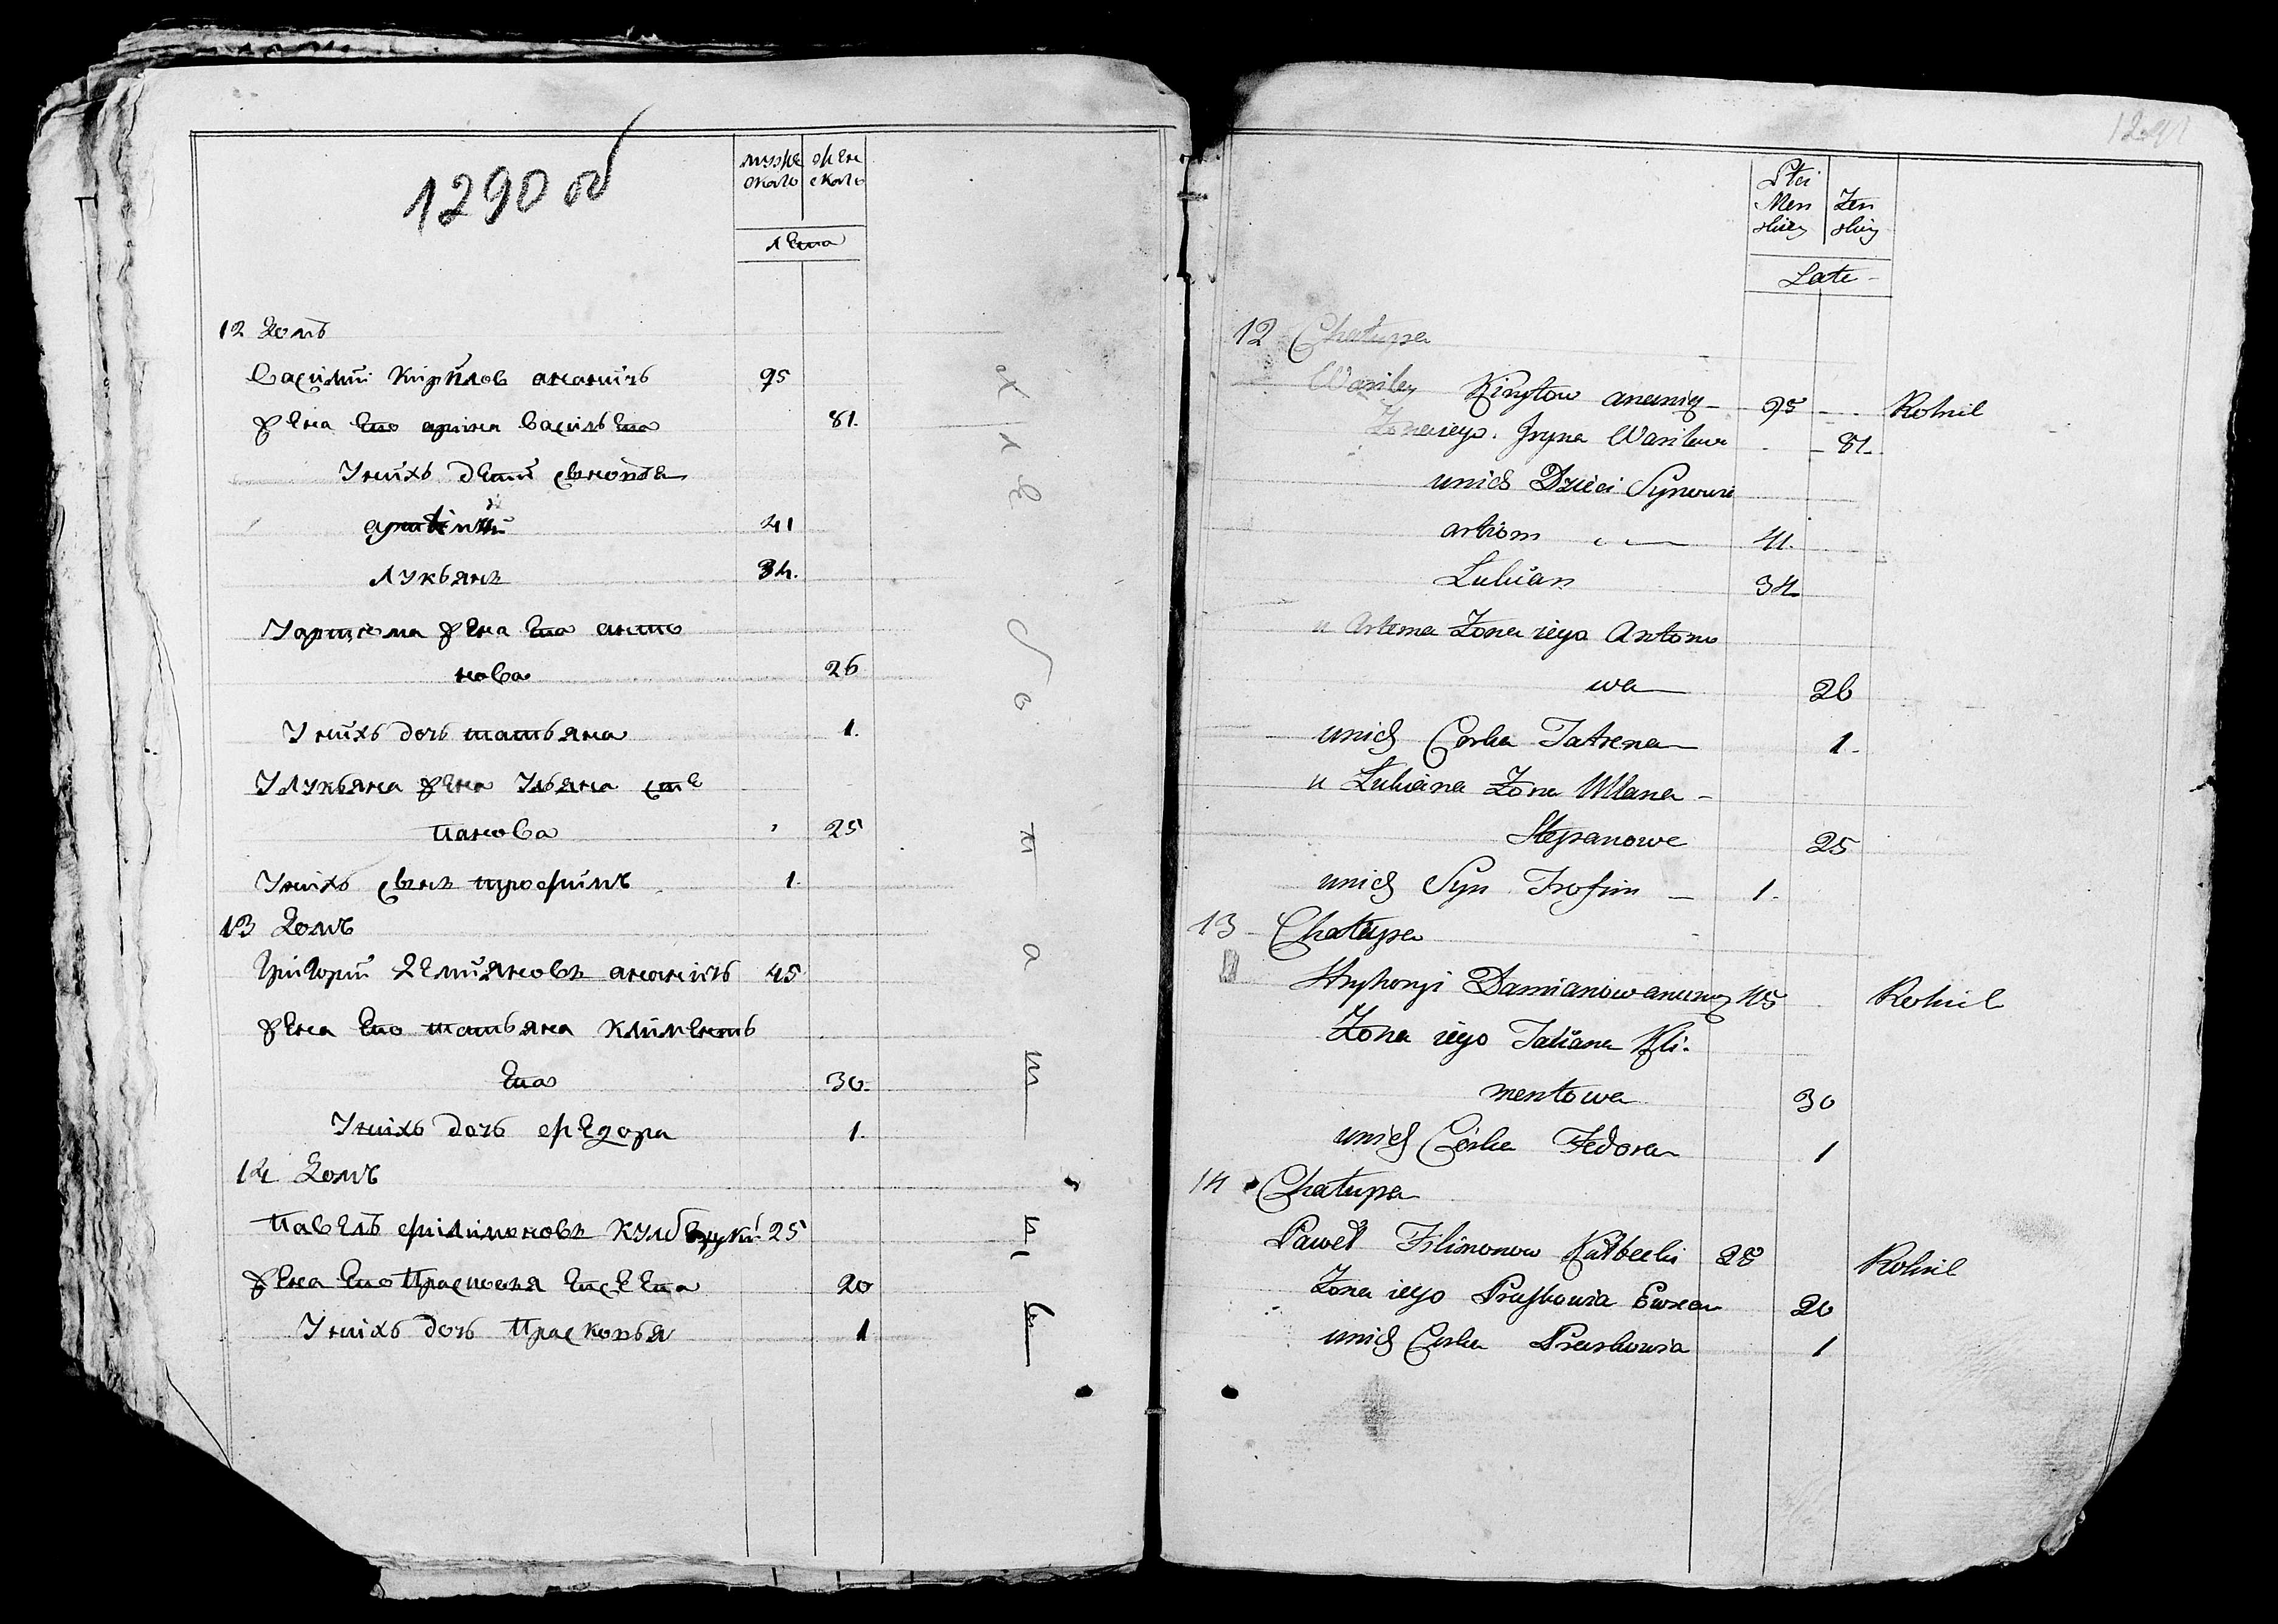 1290 об
муже женс
скаго скаго
лета
12 домъ
Василий Кирилов ананичъ 95
жена Его арина Васильева 81.
У нихъ дети сыновья
артiмий 41
Лукьянъ 34.
У артиома жена Его анто
нова 26
У нихъ дочь татьяна 1.
У Лукьяна жена Ульяна сте
панова 25
У нихъ сынъ трофимъ 1.
13 домъ
Григорий Демияновъ ананичъ 45
жена Его татьяна Климентъ
Ева 30.
У нихъ дочь федора 1.
14 домъ
Павелъ филимоновъ 25
жена Его Прасковя 20
У нихъ дочь Прасковья 1
хлебопашецъ
1291
Płci
Męs Żen
skiey skiey
Late
12 Chałupa
Wasiley Kiryłow ananicz 95 Rolnik
Żona iego Iryna Wasilewa 81.
unich Dzieci Synowie
artiom 41.
Lukian 34
u Artema Żona iego Antono
wa 26
unich Corka Tatiena 1.
u Lukiana Żona Ullana
Stepanowe 25
unich Syn Trofim 1.
13 Chałupa
Hryhoryi Damianow ananicz 45 Rolnik
Żona iego Tatiana Kli.
mentowa 30
unich Córka Fedora 1
14 Chałupa
Paweł Filimonow Kułbecki 25 Rolnik
Żona iego Praskowia 20
unich Corka Praskowia 1